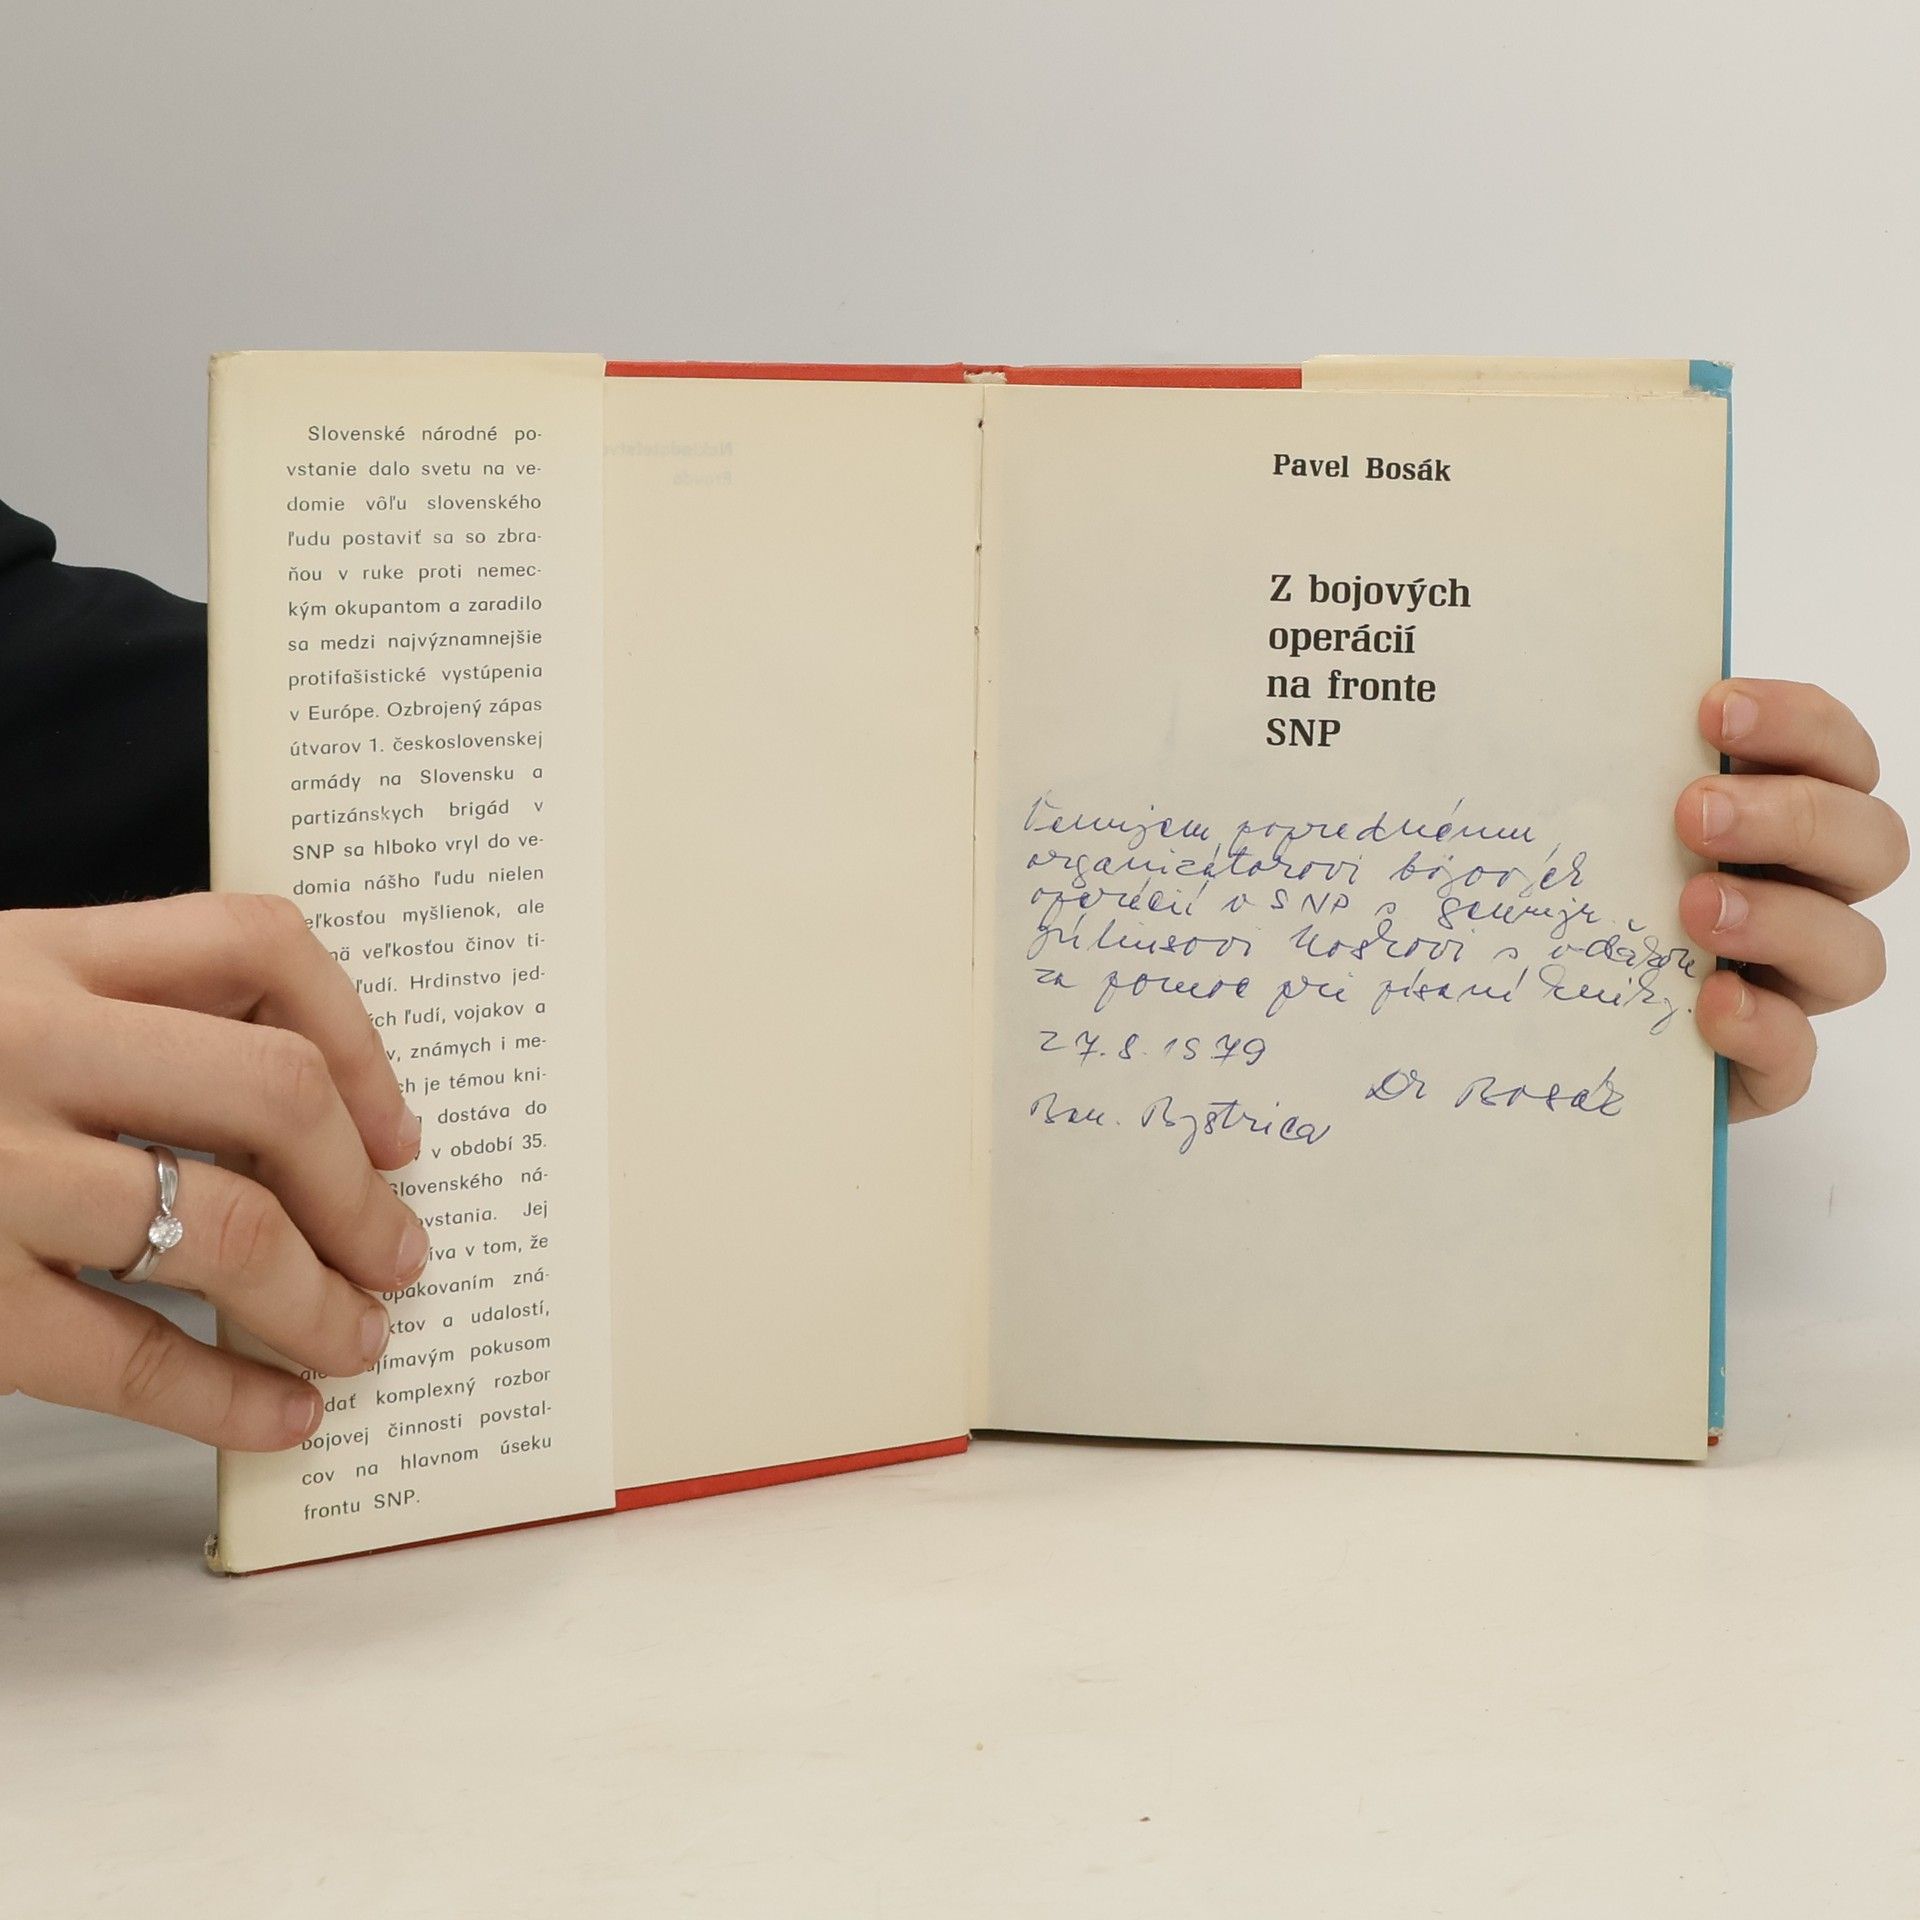 Slovenské národné po-
vstanie dalo svetu na ve-
domie vôľu slovenského
ľudu postaviť sa so zbra-
ňou v ruke proti nemec-
kým okupantom a zaradilo
sa medzi najvýznamnejšie
protifašistické vystúpenia
v Európe. Ozbrojený zápas
útvarov 1. československej
armády na Slovensku a
partizánskych brigád v
SNP sa hlboko vryl do ve-
domia nášho ľudu nielen
eľkosťou myšlienok, ale
nä veľkosťou činov ti-
ľudí. Hrdinstvo jed-
ch ľudí, vojakov a
v, známych i me-
ch je témou kni-
dostáva do
v období 35.
Slovenského ná-
ovstania. Jej
íva v tom, že
opakovaním zná-
ktov a udalostí,
ujímavým pokusom
dať komplexný rozbor
bojovej činnosti povstal-
cov na hlavnom úseku
frontu SNP.
Nakladateľstvo
Pravda
Pavel Bosák
Z bojových
operácií
na fronte
SNP
Venujem poprednému
organizátorovi bojových
operácií v SNP s. genmjr.
Júliusovi Noskovi s vďakou
za pomoc pri písaní knihy.
27.8.1979
Dr Bosák
Ban. Bystrica